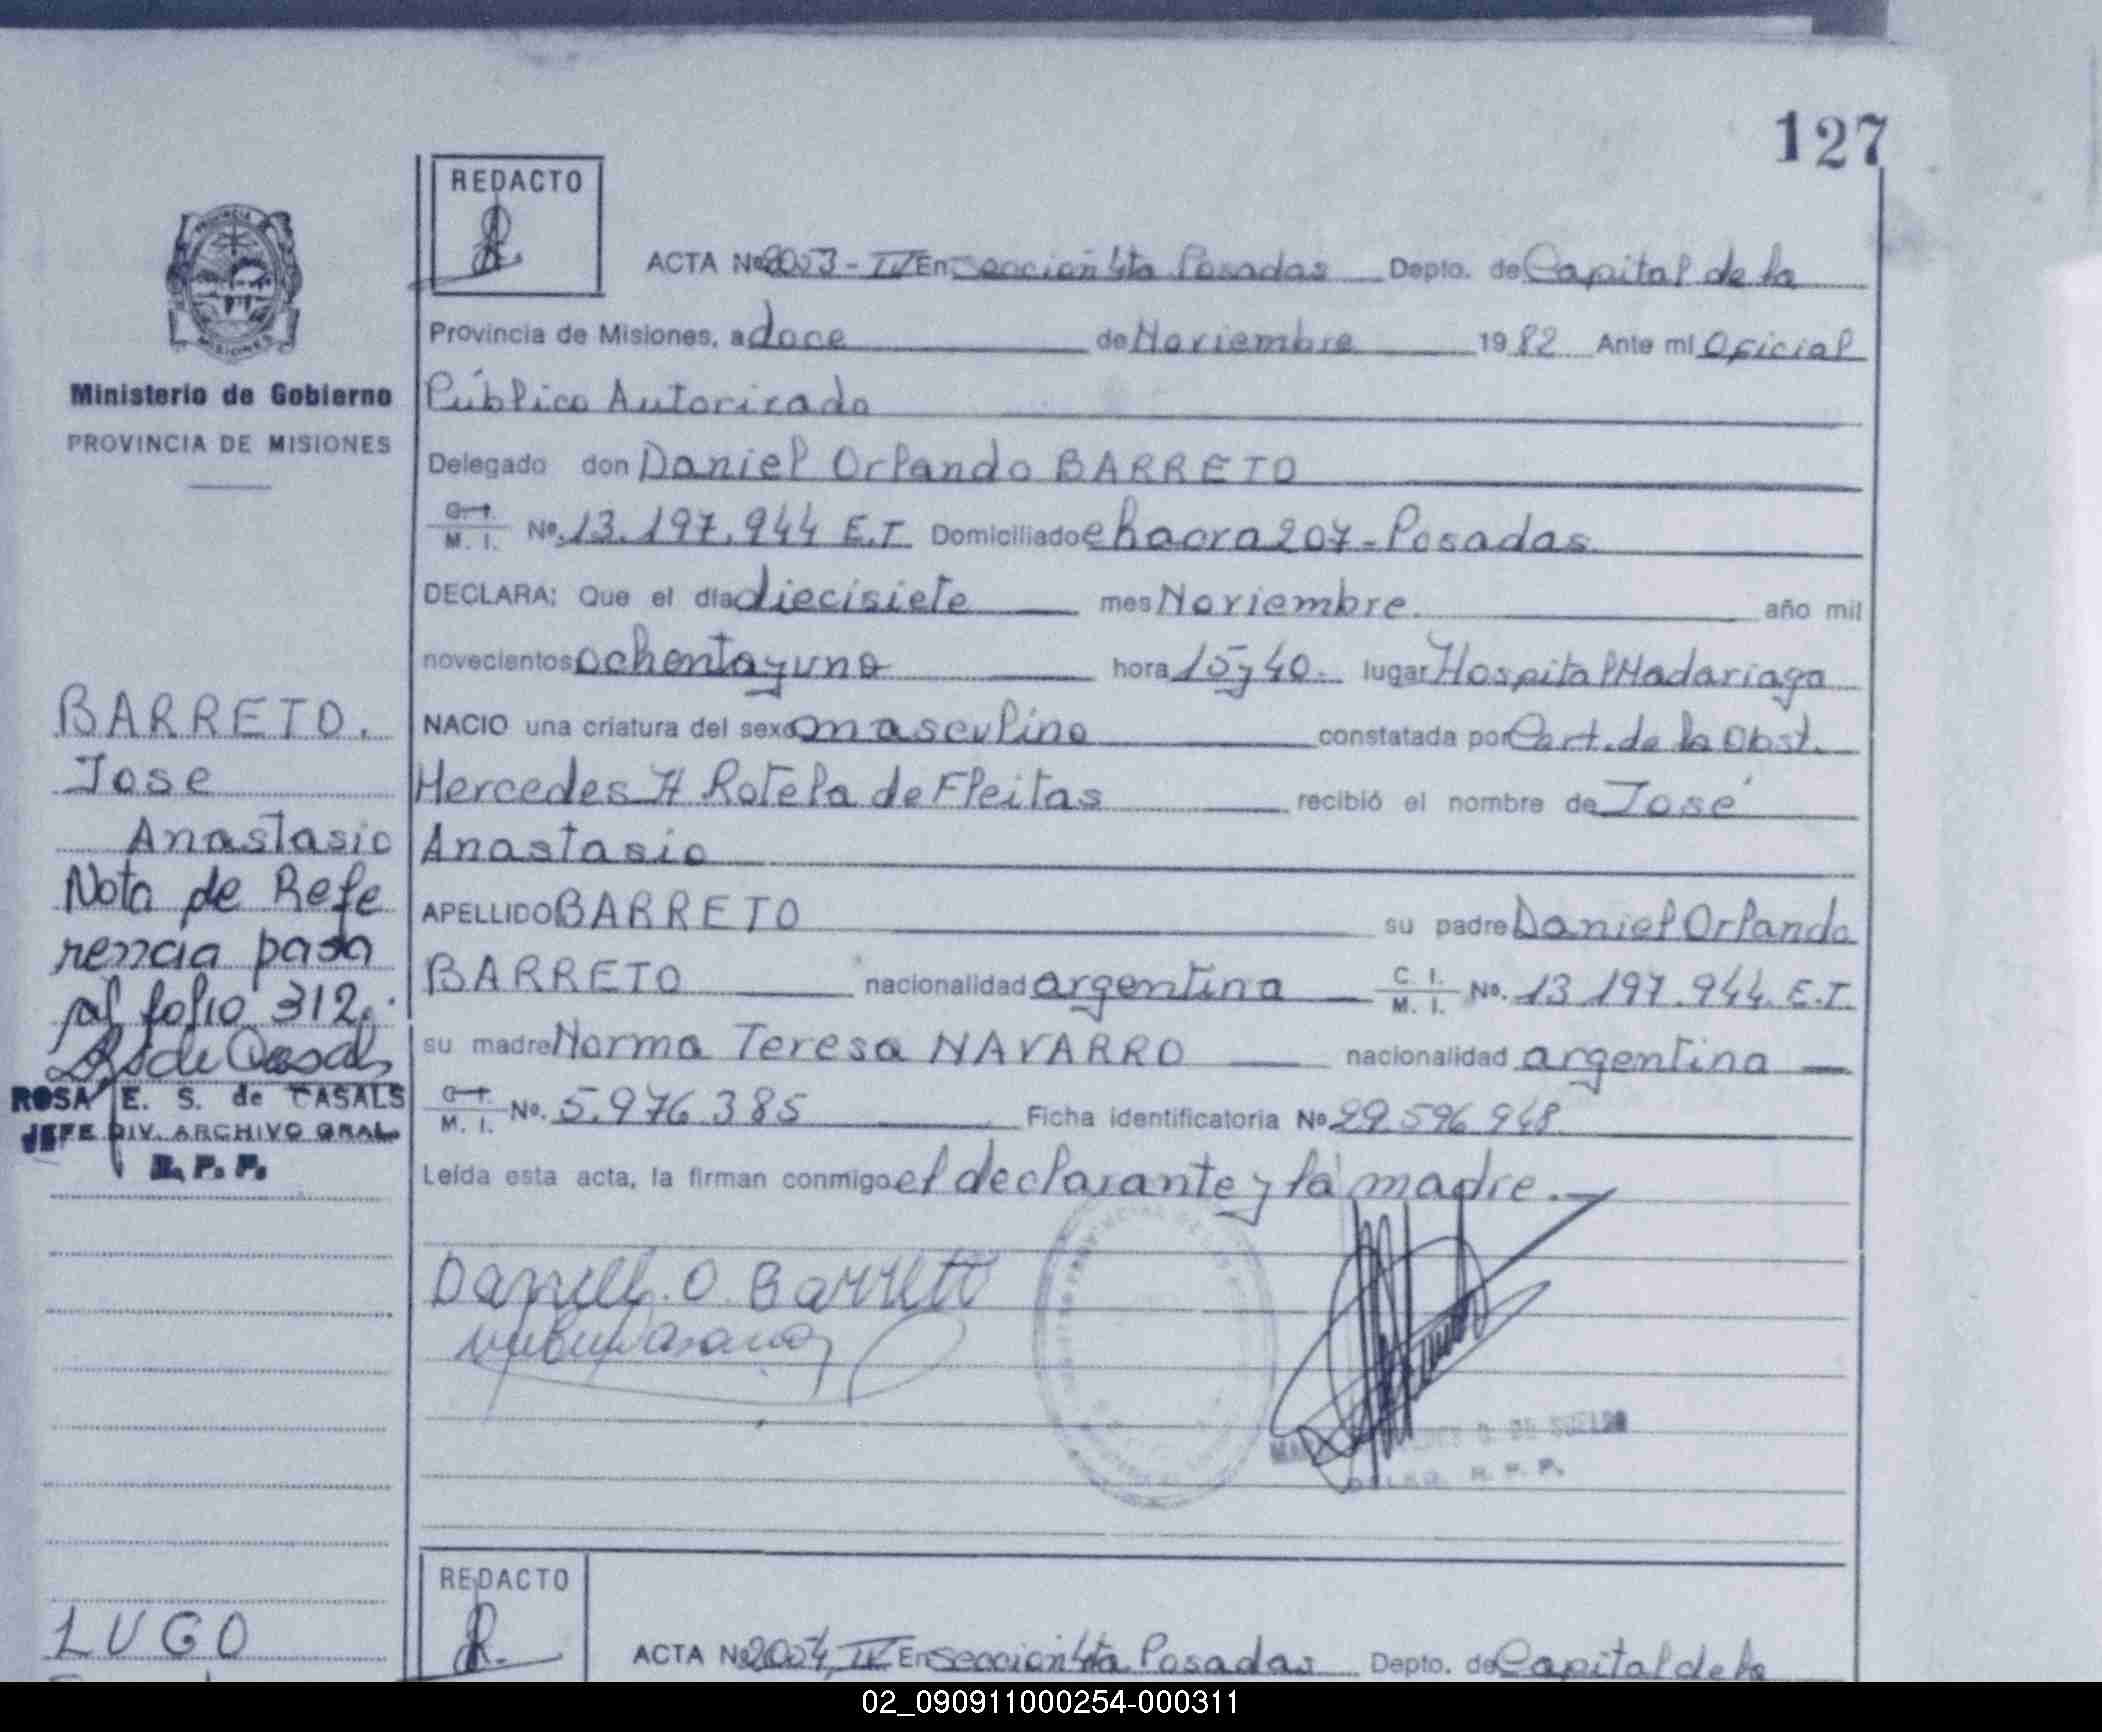 127
REDACTO
ACTA Nº 2053 - IV En Sección 4ta Posadas Depto. de Capital de la
Provincia de Misiones, a doce de Noviembre 1982 Ante mí Oficial
Público Autorizado
Delegado don Daniel Orlando BARRETO
C. I. M. I. Nº. 13.197.944 E.T. Domiciliado chacra 207 - Posadas
DECLARA: Que el día diecisiete mes Noviembre año mil
novecientos ochenta y uno hora 15 y 40. lugar Hospital Madariaga
NACIO una criatura del sexo masculino constatada por Cert. de la Obst.
Mercedes H Rotela de Fleitas recibió el nombre de José
Anastasio
APELLIDO BARRETO su padre Daniel Orlando
BARRETO nacionalidad argentina C. I. M. I. Nº. 13.197.944. E.T.
su madre Norma Teresa NAVARRO nacionalidad argentina
C. I. M. I. Nº. 5.976.385 Ficha identificatoria Nº 29.596.948
Leída esta acta, la firman conmigo el declarante y la madre.
Daniel. O. Barreto
DE SUELDO
DELEG. R. P. P.
PROVINCIA MISIONES
Ministerio de Gobierno
PROVINCIA DE MISIONES
BARRETO.
Jose
Anastasio
Nota de Refe
rencia pasa
al folio 312.
RSde Casals
ROSA E. S. de CASALS
JEFE DIV. ARCHIVO GRAL.
R. P. P.
LUGO
REDACTO
ACTA Nº 2054 IV En sección 4ta Posadas Depto. de Capital de la
02_090911000254-000311